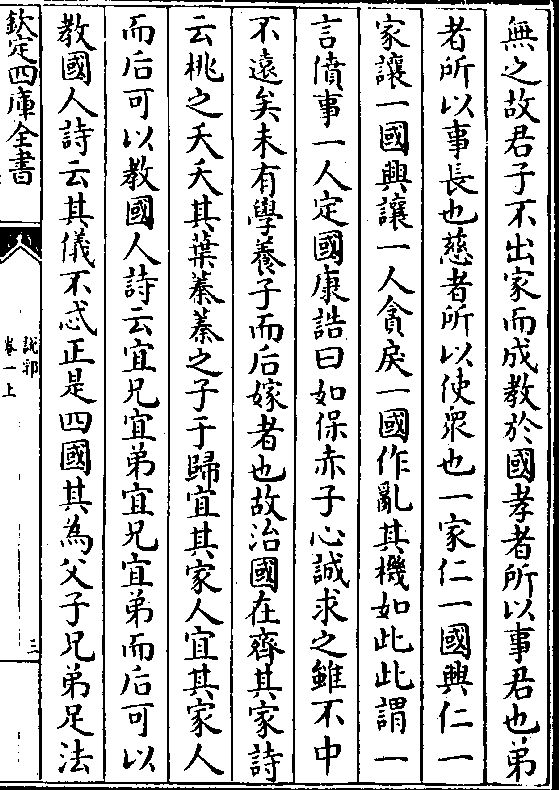 無之故君子不出家而成教於國孝者所以事君也弟
者所以事長也慈者所以使衆也一家仁一國興仁一
家讓一國興讓一人貪戾一國作亂其機如此此謂一
言僨事一人定國康誥曰如保赤子心誠求之雖不中
不遠矣未有學養子而后嫁者也故治國在齊其家詩
云桃之夭夭其葉蓁蓁之子于歸宜其家人宜其家人
而后可以教國人詩云宜兄宜弟宜兄宜弟而后可以
教國人詩云其儀不忒正是四國其為父子兄弟足法
欽定四庫全書
說郛
卷一上
三